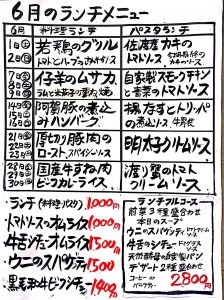 6月のランチメニュー
料理ランチ
パスタランチ
1日
2日
若鶏のグリル
トマトとハーブの
佐渡産カキの
トマトソース
7日
8日
仔羊のムサカ
自家製スモークチキン
と青菜のトマトソース
14日
15日
16日
阿蘭豚の煮込
みハンバーグ
揚なすとトリッパ
の煮込ソース
21日
22日
23日
厚切り豚肉の
ロースト、スパイシーソース
明太子クリームソース
28日
29日
30日
国産牛すね肉
ビラカルライス
渡り蟹のトマト
クリームソース
ランチ(料理とパスタ) 1,000円
トマトソースのオムライス 1000円
牛舌シチューオムライス 1500
ウニのスパゲティ 1500
黒毛和牛ビーフシチュー 1900
ランチフルコース
前菜3種盛合わせ
本日のスープ
ウニのスパゲティ
牛舌のシチュー
天然酵母の自家製パン
デザート2種盛合わせ
コーヒー or
2800円